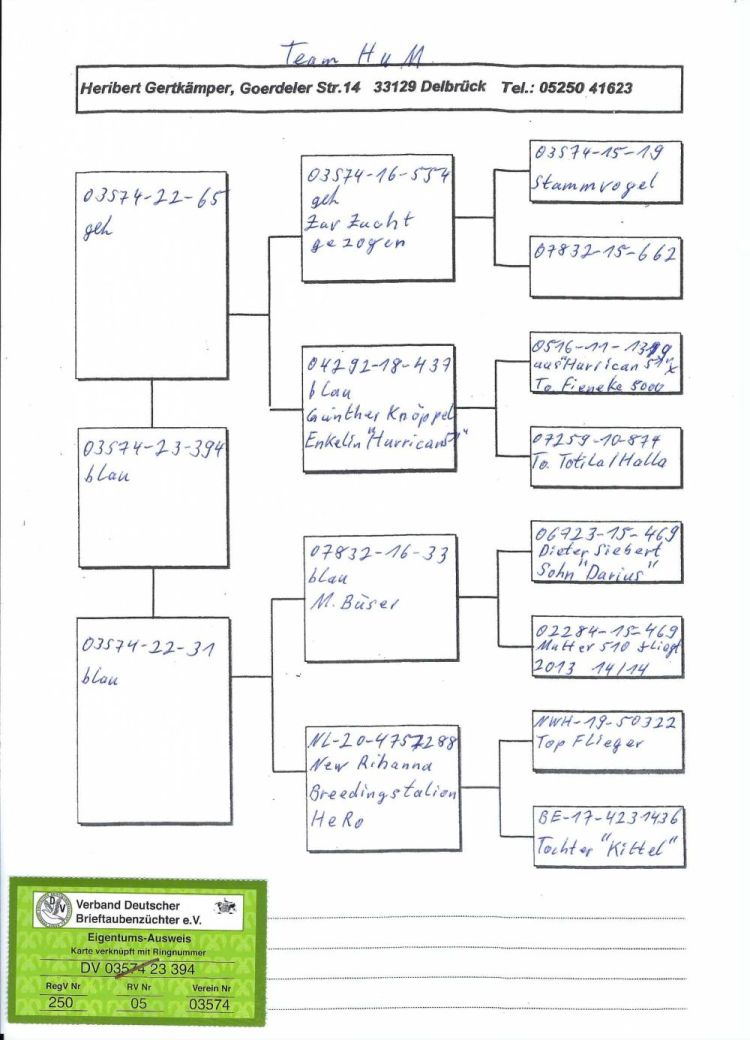 Team H u M
Heribert Gertkämper, Goerdeler Str.14 33129 Delbrück Tel.: 05250 41623
03574-22-65
geh
03574-23-394
blau
03574-22-31
blau
03574-16-554
geh
Zur Zucht
gezogen
04292-18-437
blau
Günther Knöppel
Enkelin "Hurrican 51"
07832-16-33
blau
M. Büser
NL-20-4757288
New Rihanna
Breedingstalion
HeRo
03574-15-19
Stammvogel
07832-15-662
0516-11-
aus "Hurrican 51" x
To. Fieneke 5000
07259-10-874
To. Totila/Halla
06723-15-469
Dieter Siebert
Sohn "Darius"
02284-15-469
Mutter 510 fliegt
2013 14/14
NWH-19-50322
Top Flieger
BE-17-4231436
Tochter "Kittel"
Verband Deutscher
Brieftaubenzüchter e.V.
Eigentums-Ausweis
Karte verknüpft mit Ringnummer
DV 03574 23 394
RegV Nr RV Nr Verein Nr
250 05 03574